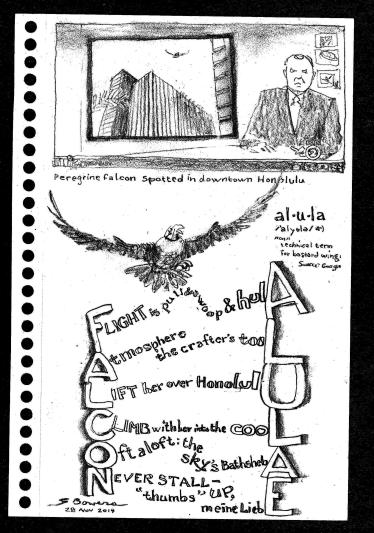 Peregrine falcon spotted in downtown Honolulu
al·u·la
/'alyələ/
noun
technical term
for bastard wing.
Source: Google
FLIGHT is & hulA
Atmosphere
the crafter's tooL
LIFT her over HonolulU
CLIMB with her into the COOL
Oft aloft: the
sky's BathshebA
NEVER STALL–
"thumbs" UP,
meine LiebE
S Bowers
28 Nov 2019